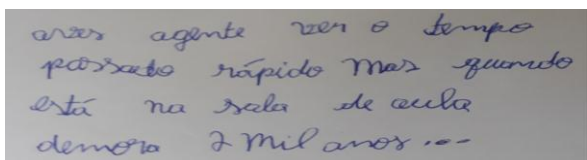 arzes agente ver o tempo
passado rápido mas quando
está na sala de aula
demora 2 mil anos...